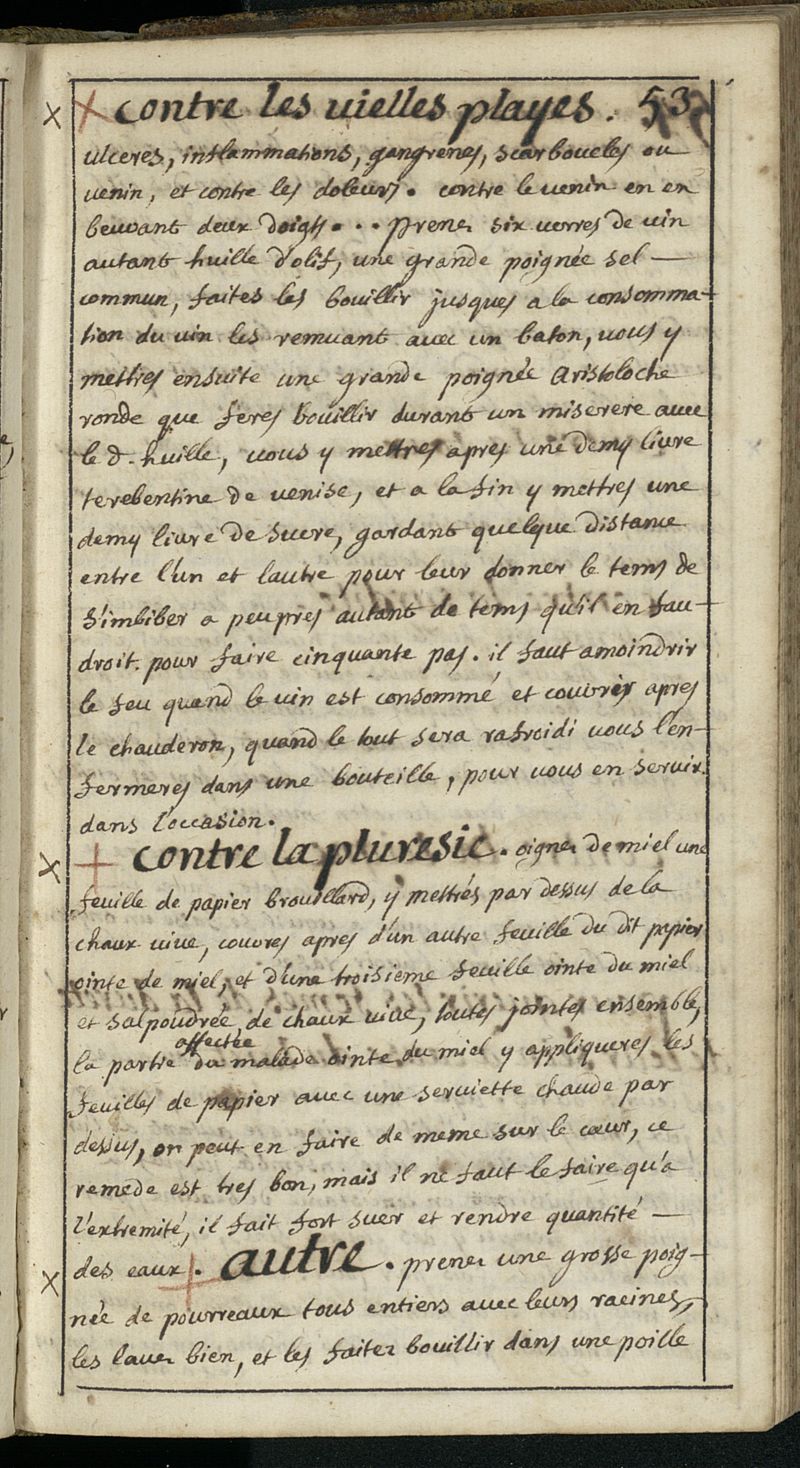 × × contre les vielles playes. 53
ulceres, inflammations, gangrenes, scarboucles ou
venin, et contre les doleurs. contre le venin en en
beuvant deux doigts... prenez six verres de vin
autant huille d'olif, une grande poignée sel —
commun, faites les bouillir jusques a la consomma-
tion du vin les remuant avec un baton, vous y
mettres ensuite une grande poignée Aristoloche
ronde que feres bouillir durant un miserere avec
le d. huille, vous y mettres apres une demy livre
terebentine de venise, et a la fin y mettres une
demy livre de sucre, gardant quelque distance
entre l'un et lautre pour leur donner le tems de
s'imbiber a peu pres autant de tems qu'il en fau-
droit pour faire cinquante pas. il faut amoindrir
le feu quand le vin est consommé et couvrir apres
le chauderon, quand le tout sera rafroidi vous l'en-
fermeres dans une bouteille, pour vous en servir
dans l'occasion.
× + contre la pluresie. oignez de miel une
feuille de papier brouillard, y mettrés par dessus de la
chaux vive, couvres apres d'un autre feuille du dit papier
ointe de miel, et d'une troisieme feuille ointe du miel
et salpoudrée de chaux vive, toutes jointes ensemble,
la partie affectée du malade ointe du miel y appliqueres les
feuilles de papier avec une serviette chaude par
dessus, on peut en faire de meme sur le cœur, ce
remede est tres bon, mais il ne faut le faire qu'a
l'extremité, il fait fort suer et rendre quantité —
des eaux. + autre. prenez une grosse poig-
× née de pourreaux tous entiers avec leurs racines,
les lavez bien, et les faitez bouillir dans une poille